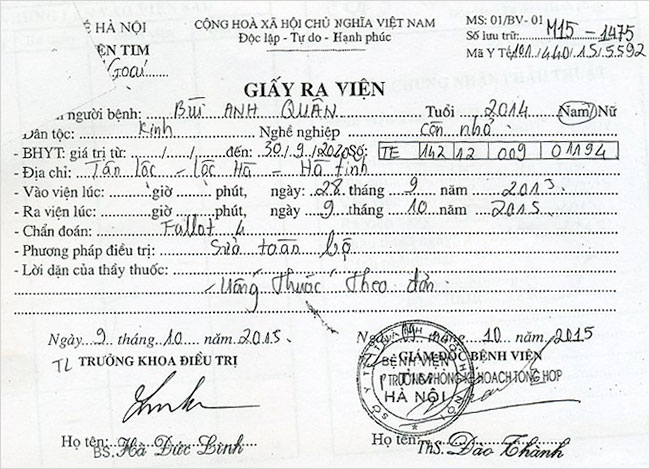 Ế HÀ NỘI
CỘNG HOÀ XÃ HỘI CHỦ NGHĨA VIỆT NAM
MS: 01/BV- 01
ỆN TIM
Độc lập - Tự do - Hạnh phúc
Số lưu trữ: M15 - 1475
Ngoại
Mã Y Tế 101/440/15/5592
GIẤY RA VIỆN
người bệnh: BÙI ANH QUÂN Tuổi 2014 Nam/Nữ
Dân tộc: Kinh Nghề nghiệp còn nhỏ
- BHYT: giá trị từ: ...../...../..... đến: 30/9/2020 Số: TE 142 12 009 01194
- Địa chỉ: Tân Lộc - Lộc Hà - Hà Tĩnh
- Vào viện lúc: giờ phút, ngày: 28 tháng 9 năm 2013
- Ra viện lúc: giờ phút, ngày 9 tháng 10 năm 2015
- Chẩn đoán: Fallot 4
- Phương pháp điều trị: Sửa toàn bộ
- Lời dặn của thầy thuốc:
- Uống thuốc theo đơn
Ngày 9 tháng 10 năm 2015
Ngày 09 tháng 10 năm 2015
TL TRƯỞNG KHOA ĐIỀU TRỊ
GIÁM ĐỐC BỆNH VIỆN
P TRƯỞNG PHÒNG KẾ HOẠCH TỔNG HỢP
BỆNH VIỆN
TIM
HÀ NỘI
Họ tên: BS. Hà Đức Linh
Họ tên: ThS. Đào Thành